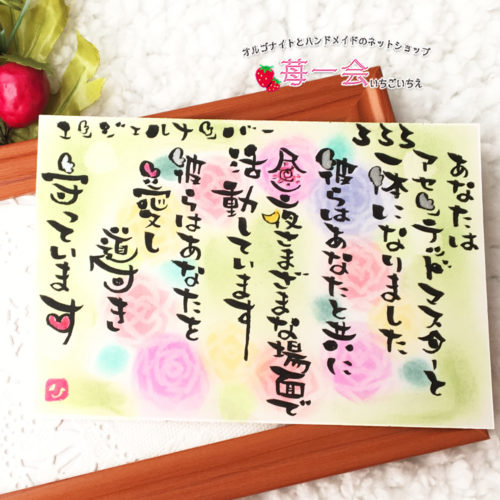 オルゴナイトとハンドメイドのネットショップ
苺一会
いちごいちえ
エンジェルナンバー 333
あなたは
アセンデッドマスターと
一体になりました
彼らはあなたと共に
昼夜さまざまな場面で
活動しています
彼らはあなたを
愛し
導き
守っています